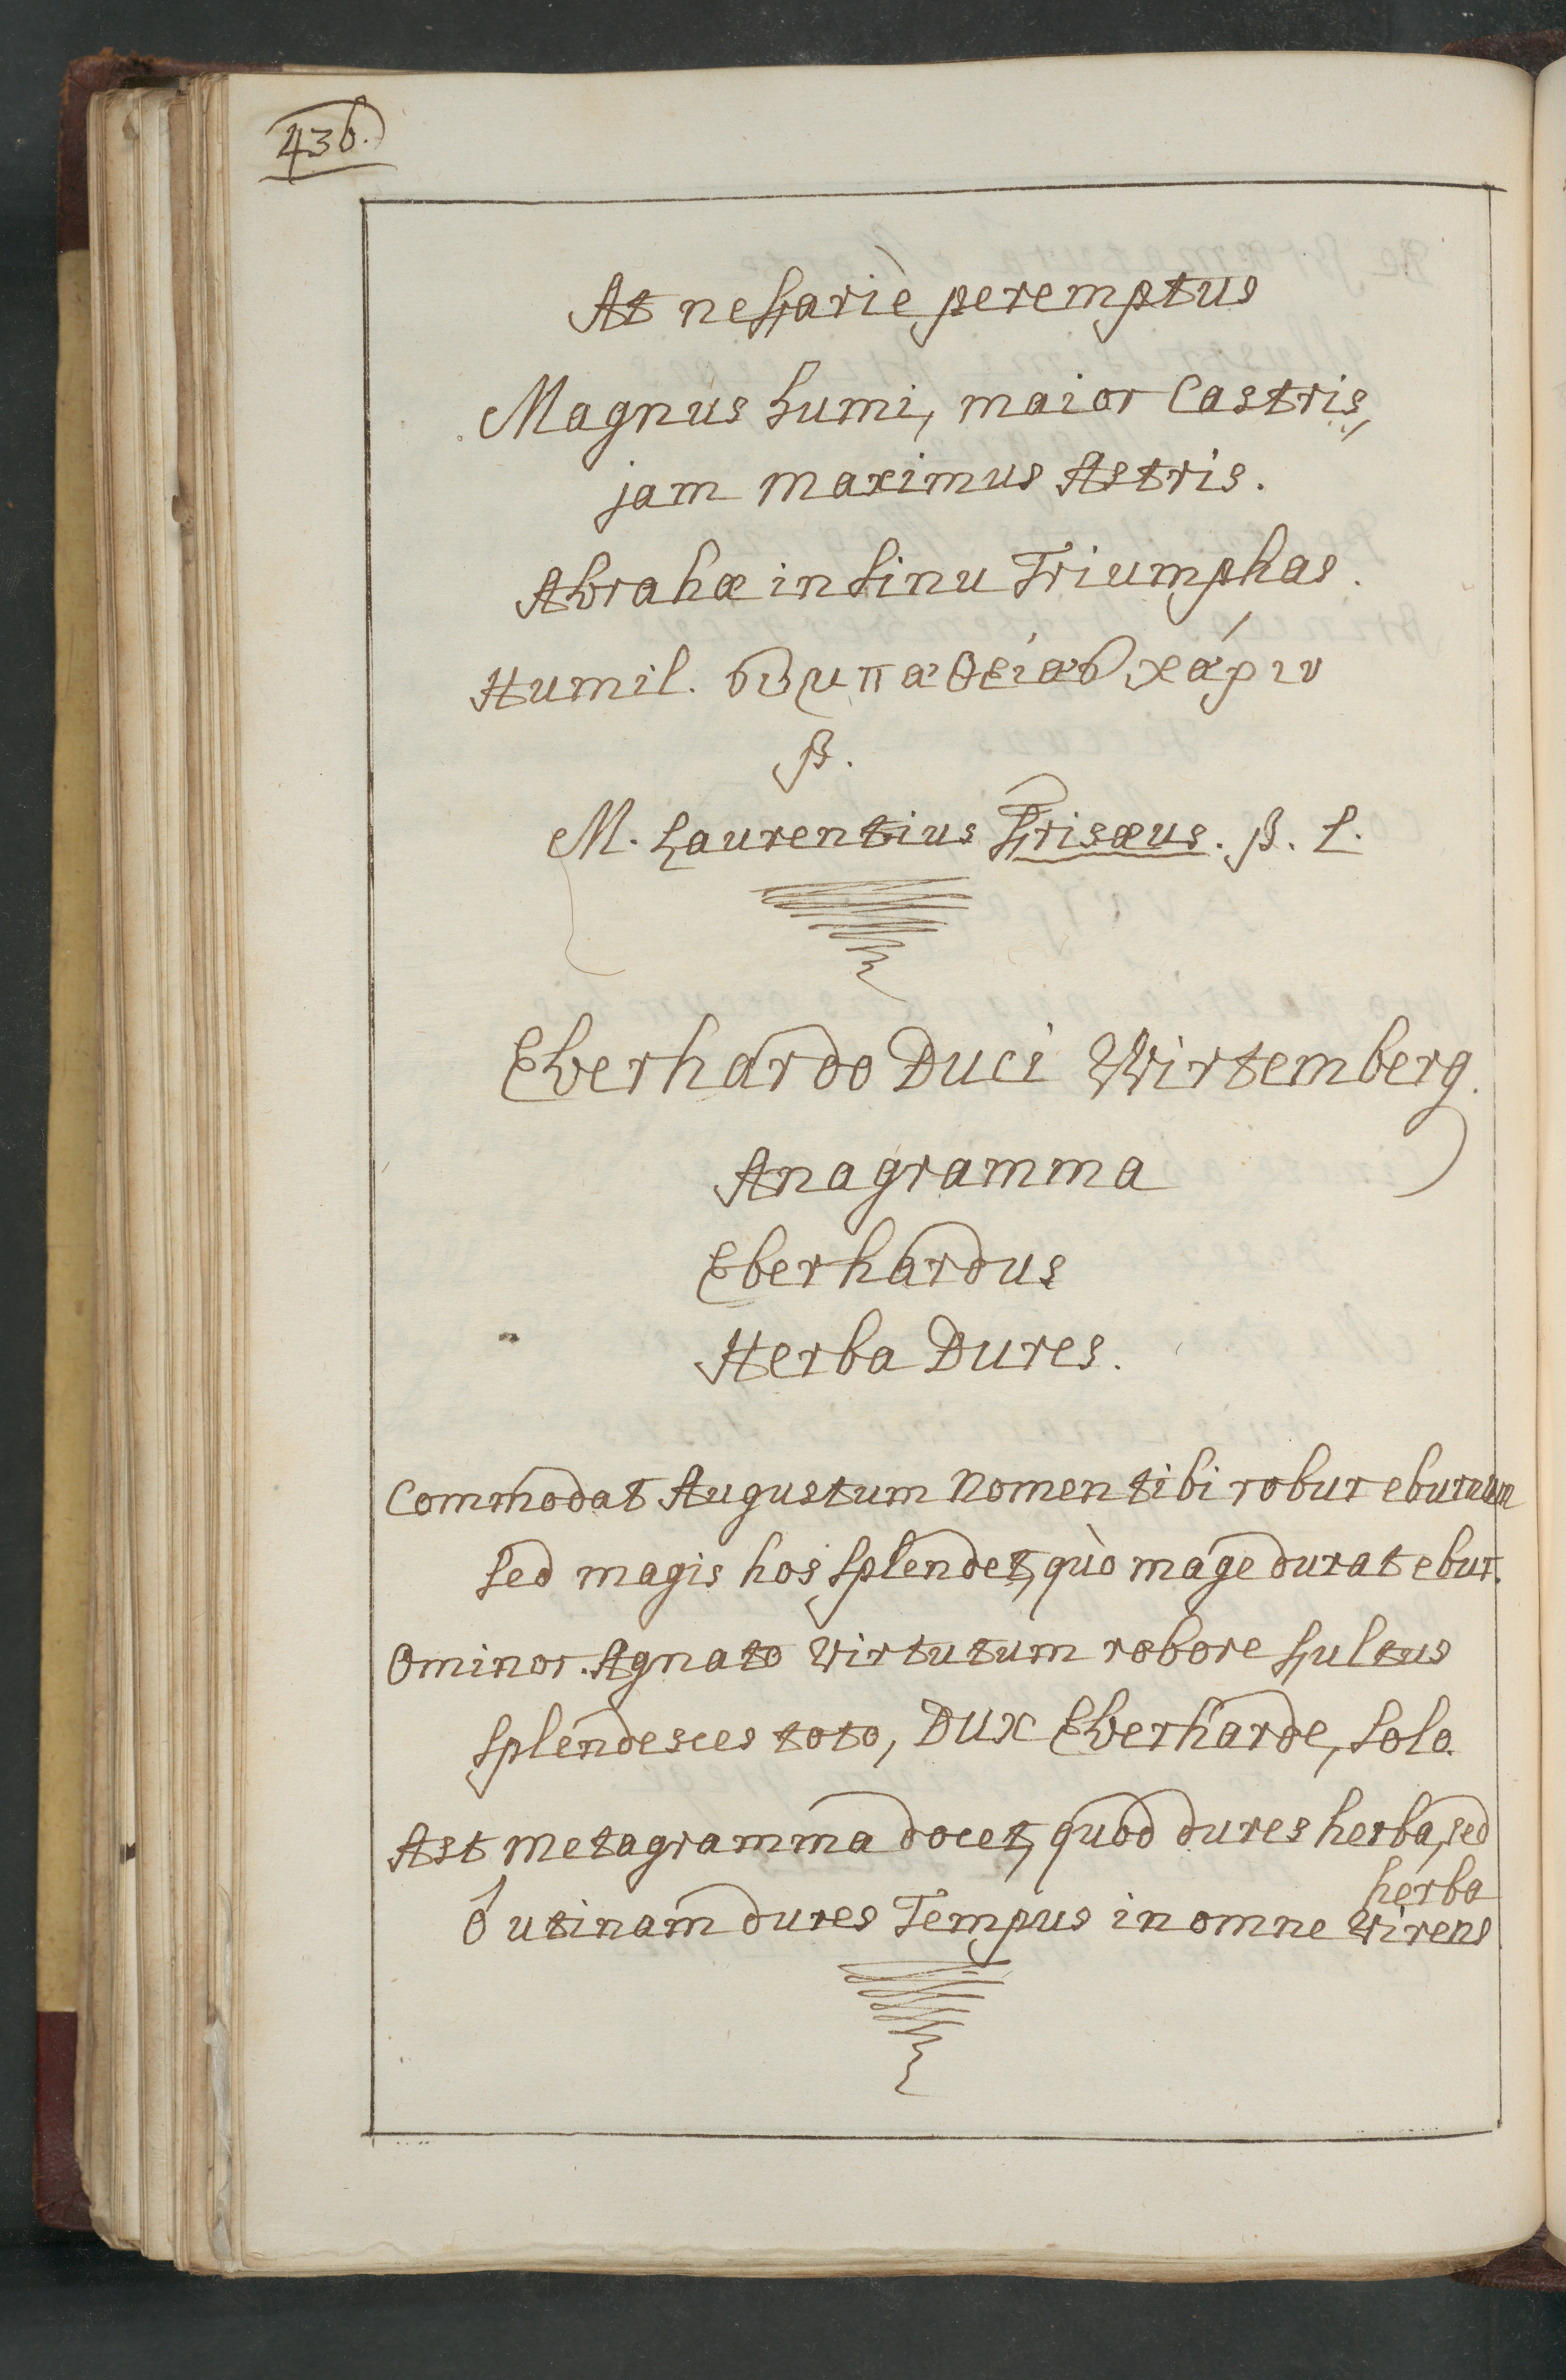 436.
At nefariè peremptus
Magnus humi, maior Castris,
jam maximus Astris.
Abrahæ in sinu Triumphas.
Humil. συμπαθείας χάριν
P.
M. Laurentius Frisæus. P. L.
Eberhardo Duci Wirtemberg.
Anagramma
Eberhardus
Herba Dures.
Commodat Augustum Nomen tibi robur eburnum
Sed magis hos splendet, quò mage durat ebur.
Ominor. Agnato Virtutum robore fultus
Splendesces toto, Dux Eberharde, solo.
Ast Metagramma docet, quod dures herba, sed
herba
ô utinam dures Tempus in omne Virens